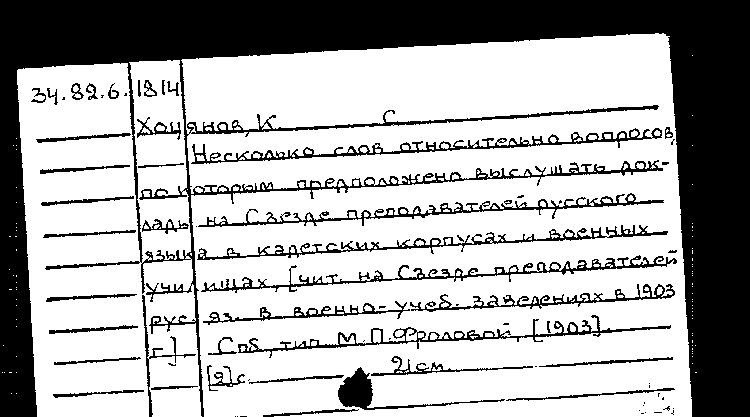 34.82.6.1814
Хоцянов, К. С
Несколько слов относительно вопросов,
по которым предположено выслушать док-
лады на Съезде преподавателей русского
языка в кадетских корпусах и военных
училищах, [чит. на Съезде преподавателей
рус. яз. в военно-учеб. заведениях в 1903
г.] Спб, тип М.П.Фроловой, [1903].
[2] с. 21 см.